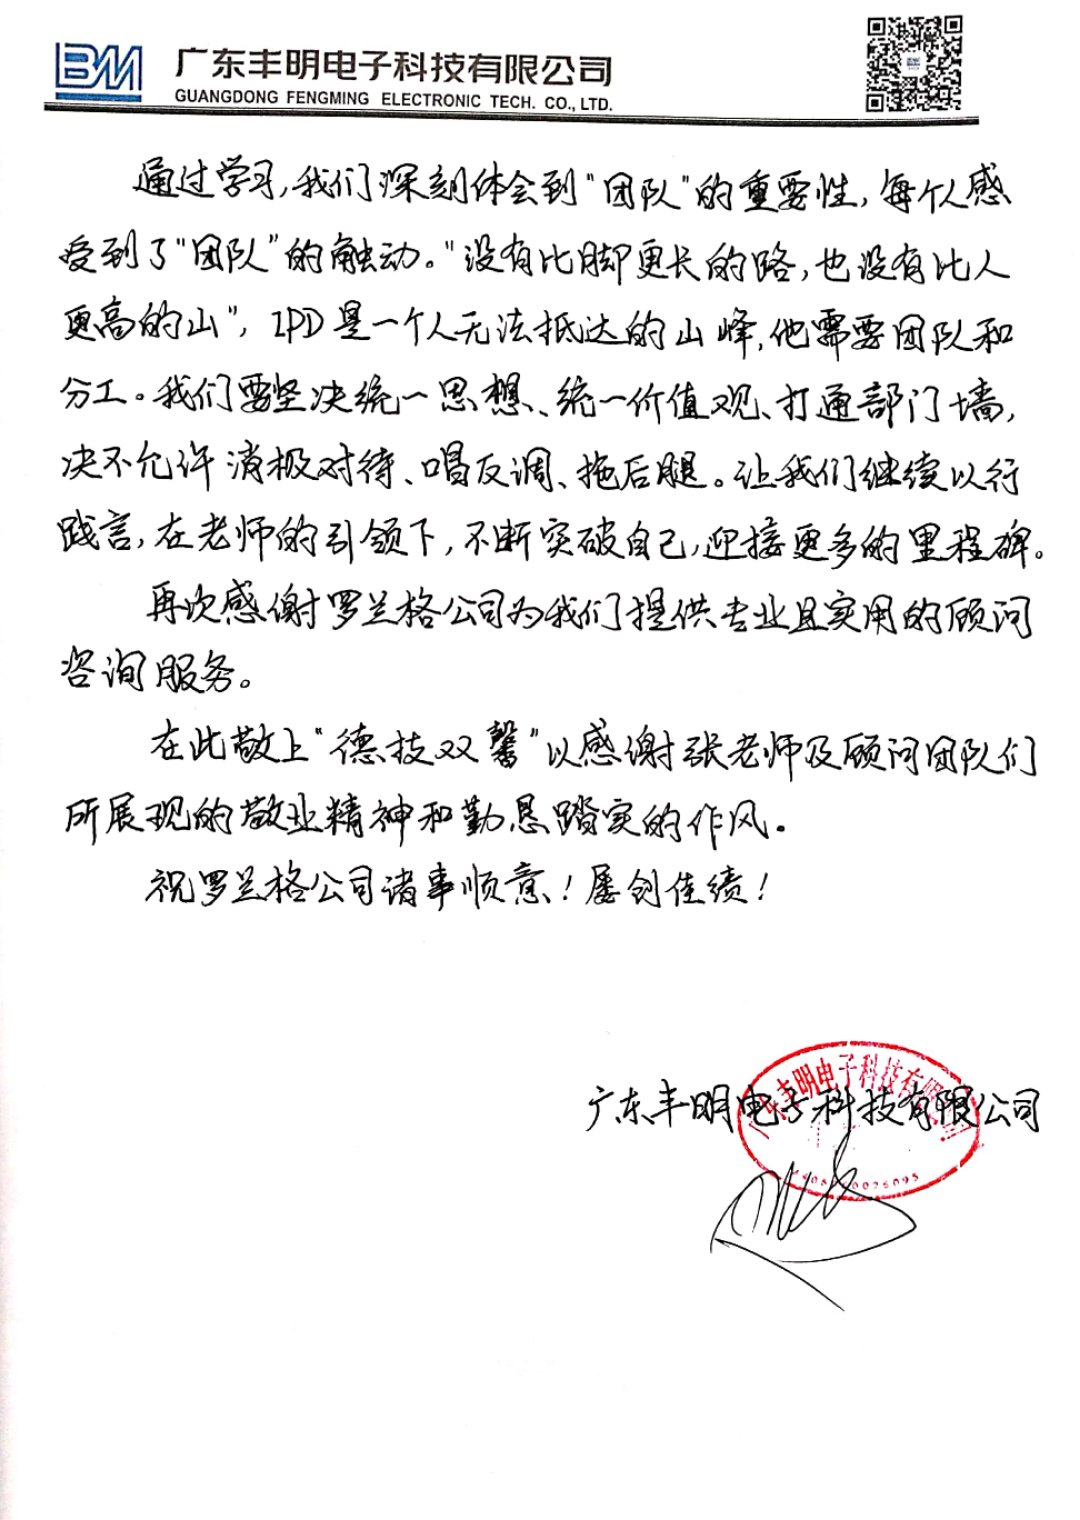 BM
广东丰明电子科技有限公司
GUANGDONG FENGMING ELECTRONIC TECH. CO., LTD.
通过学习，我们深刻体会到“团队”的重要性，每个人感
受到了“团队”的触动。“没有比脚更长的路，也没有比人
更高的山”，IPD是一个人无法抵达的山峰，他需要团队和
分工。我们要坚决统一思想、统一价值观、打通部门墙，
决不允许消极对待、唱反调、拖后腿。让我们继续以行
践言，在老师的引领下，不断突破自己，迎接更多的里程碑。
再次感谢罗兰格公司为我们提供专业且实用的顾问
咨询服务。
在此敬上“德技双馨”以感谢张老师及顾问团队们
所展现的敬业精神和勤恳踏实的作风。
祝罗兰格公司诸事顺意！屡创佳绩！
广东丰明电子科技有限公司
广东丰明电子科技有限公司